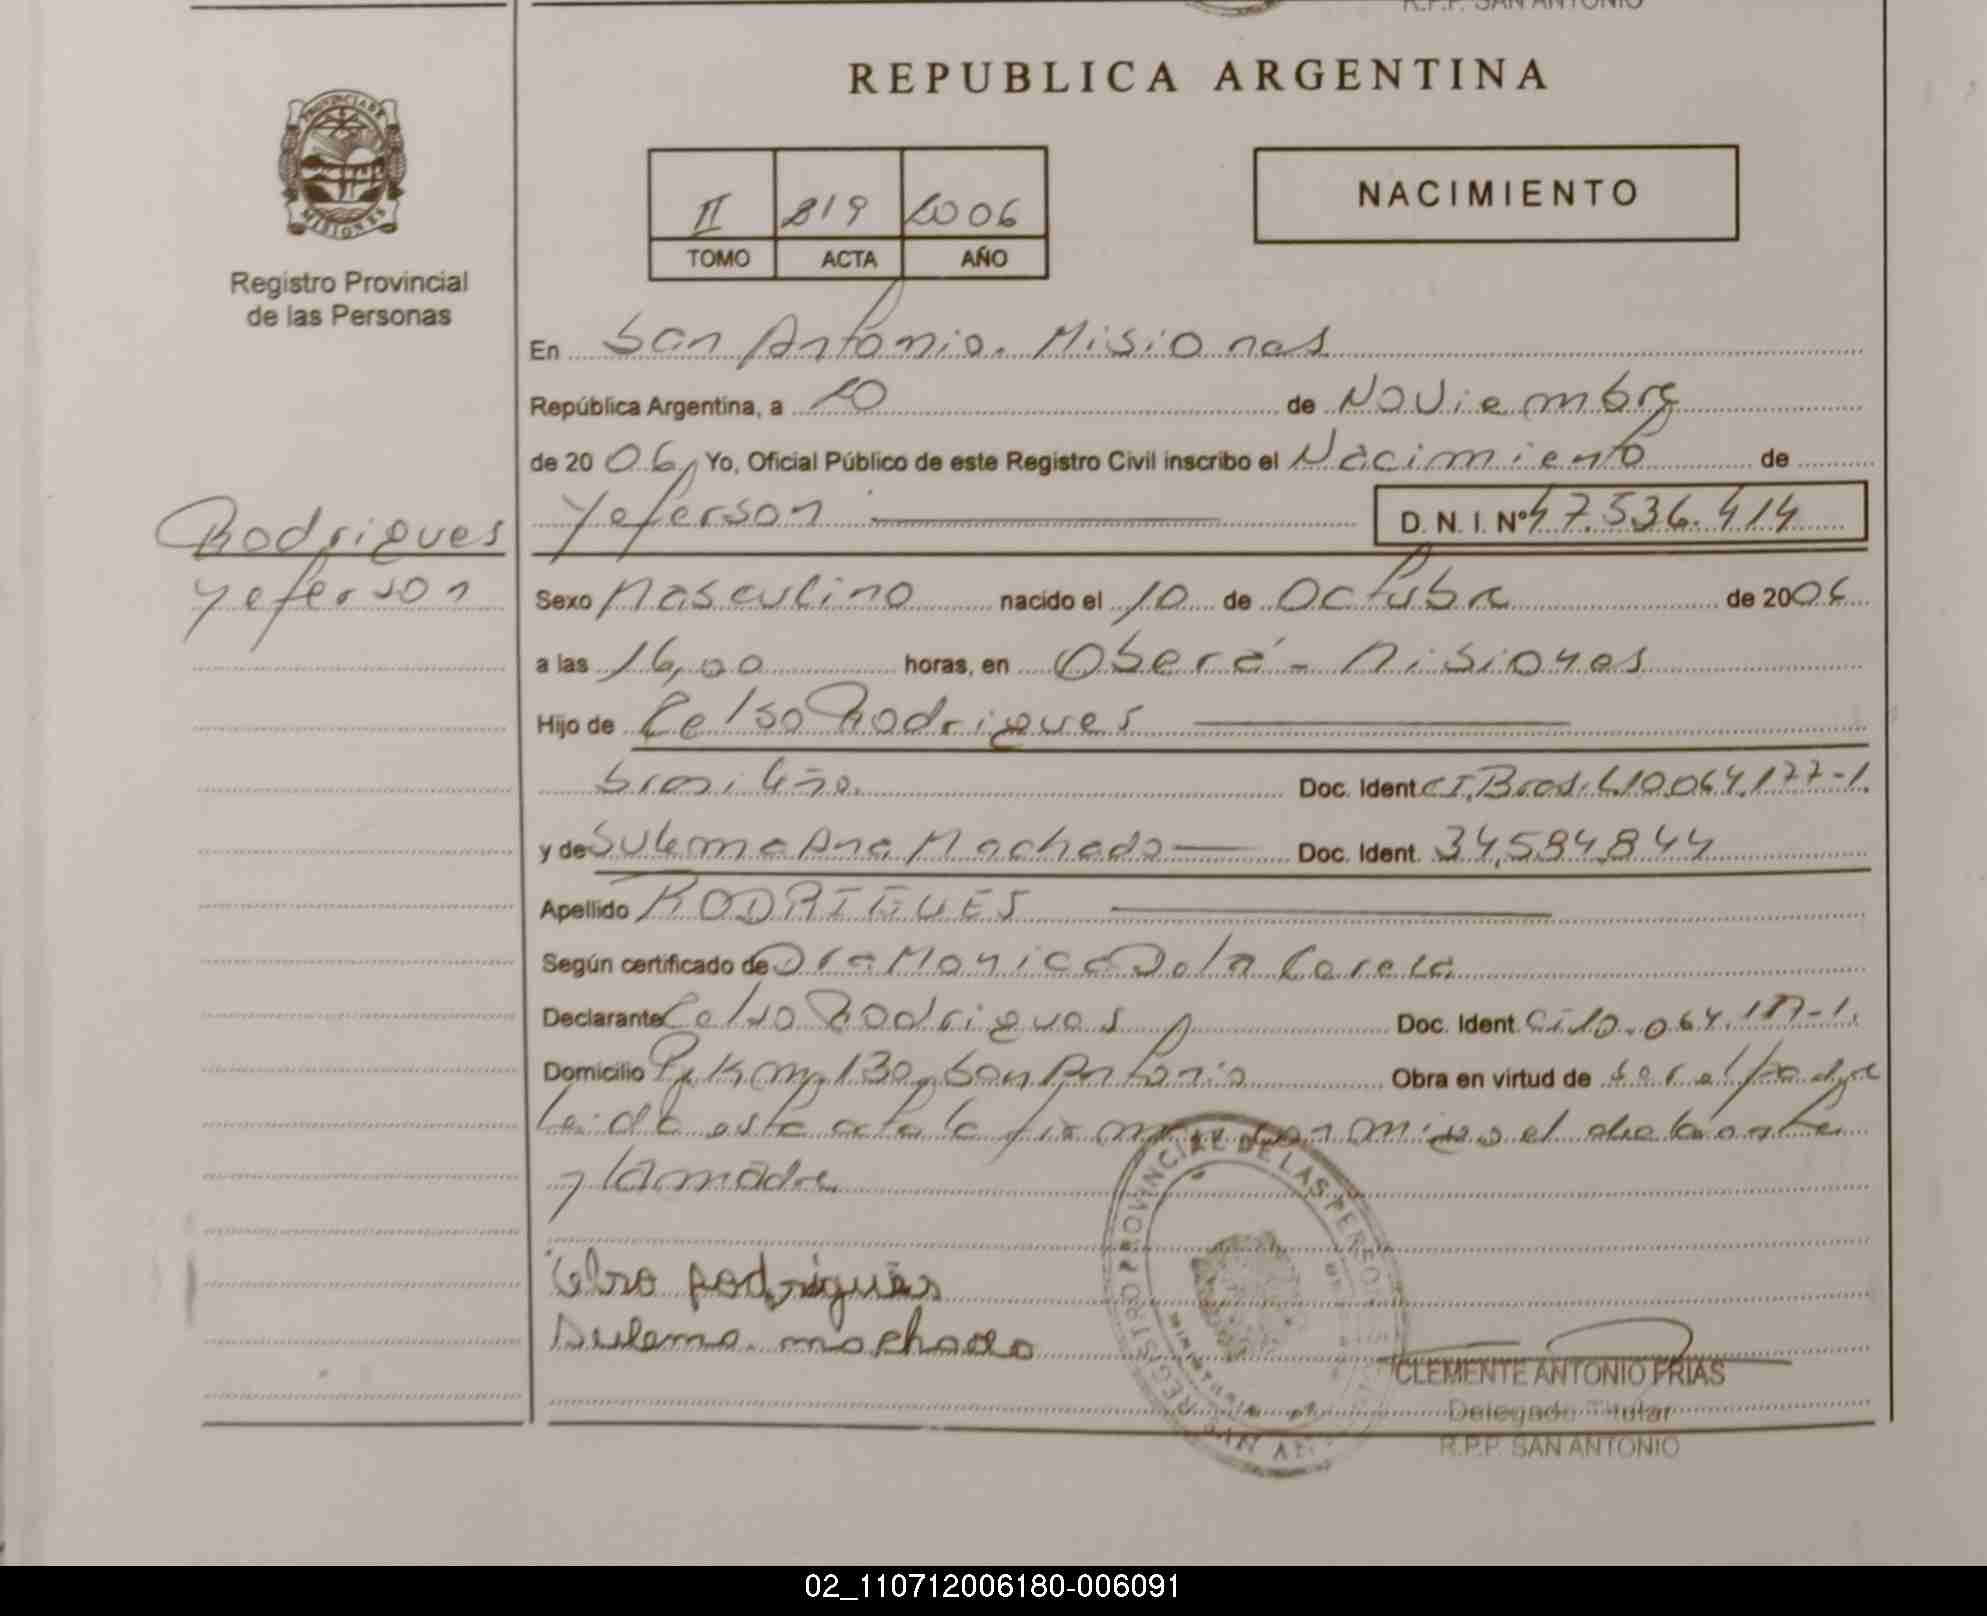 R.P.P. SAN ANTONIO
REPUBLICA ARGENTINA
PROVINCIA DE
MISIONES
Registro Provincial
de las Personas
II 219 2006
TOMO ACTA AÑO
NACIMIENTO
En San Antonio. Misiones
República Argentina, a 20 de Noviembre
de 2006, Yo, Oficial Público de este Registro Civil inscribo el Nacimiento de
Yeferson D. N. I. Nº 47.536.414
Rodrigues
Yeferson
Sexo Masculino nacido el 10 de Octubre de 2006
a las 16,00 horas, en Oberá - Misiones
Hijo de Celso Rodrigues
brasileño. Doc. Ident. CI. Brasil 10.064.177-1.
y de Sulema Ana Machado Doc. Ident. 34.584.844
Apellido RODRIGUES
Según certificado de Dra Monica
Declarante Celso Rodrigues Doc. Ident. CI 10.064.177-1.
Domicilio Km 130, San Antonio Obra en virtud de ser el padre
Leida esta acta la firman conmigo el declarante
y la madre
Celso Rodrigues
Sulema machado
REGISTRO PROVINCIAL DE LAS PERSONAS
CLEMENTE ANTONIO FRIAS
Delegado Titular
R.P.P. SAN ANTONIO
02_110712006180-006091